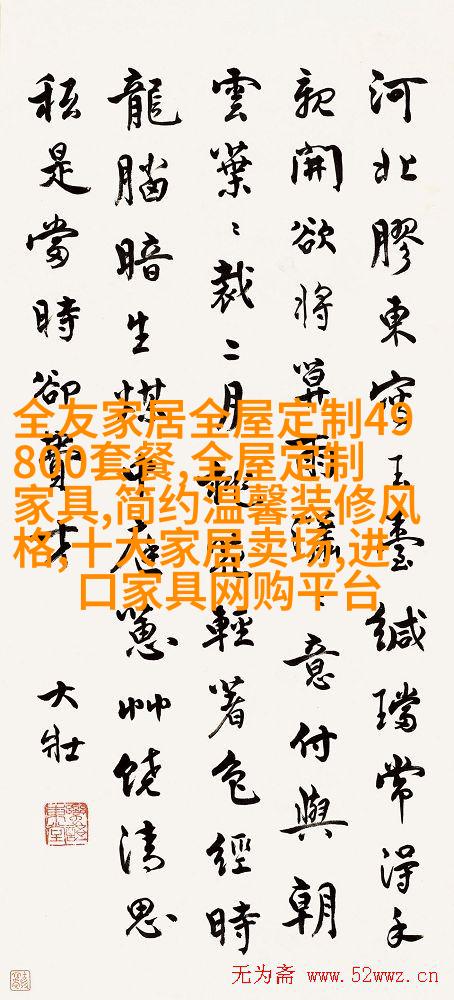 河北膠東玉臺緘璫常得手
親開欲將算雨意付與朝
雲葉〻裁二月輕著色經時
龍腦暗生煤艸饒清思
秖是當時卻
大壯
全友家居全屋定制49
800套餐,全屋定制
家具,简约温馨装修风
格,十大家居卖场,进
口家具网购平台
无为斋 www.52wwz.cn